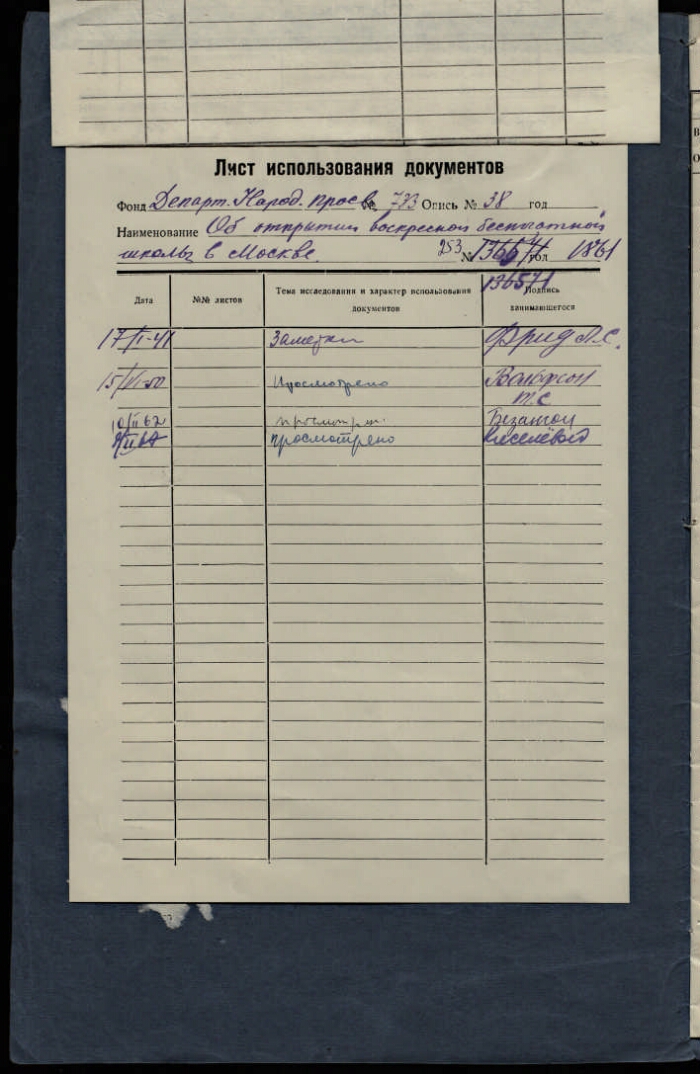 Лист использования документов
Фонд Департ. Народ. просв. № 733 Опись № 38 год
Наименование Об открытии воскресной бесплатной
школы в Москве. 253 № 136571 год 1861
136571
Дата №№ листов Тема исследования и характер использования документов Подпись занимающегося
17/II-41 Заметки Фрид Л.С.
15/VI-50 Просмотрено Вольфсон
Т.С
10/II 62 просмотр.
II 64 просмотрено Киселёва